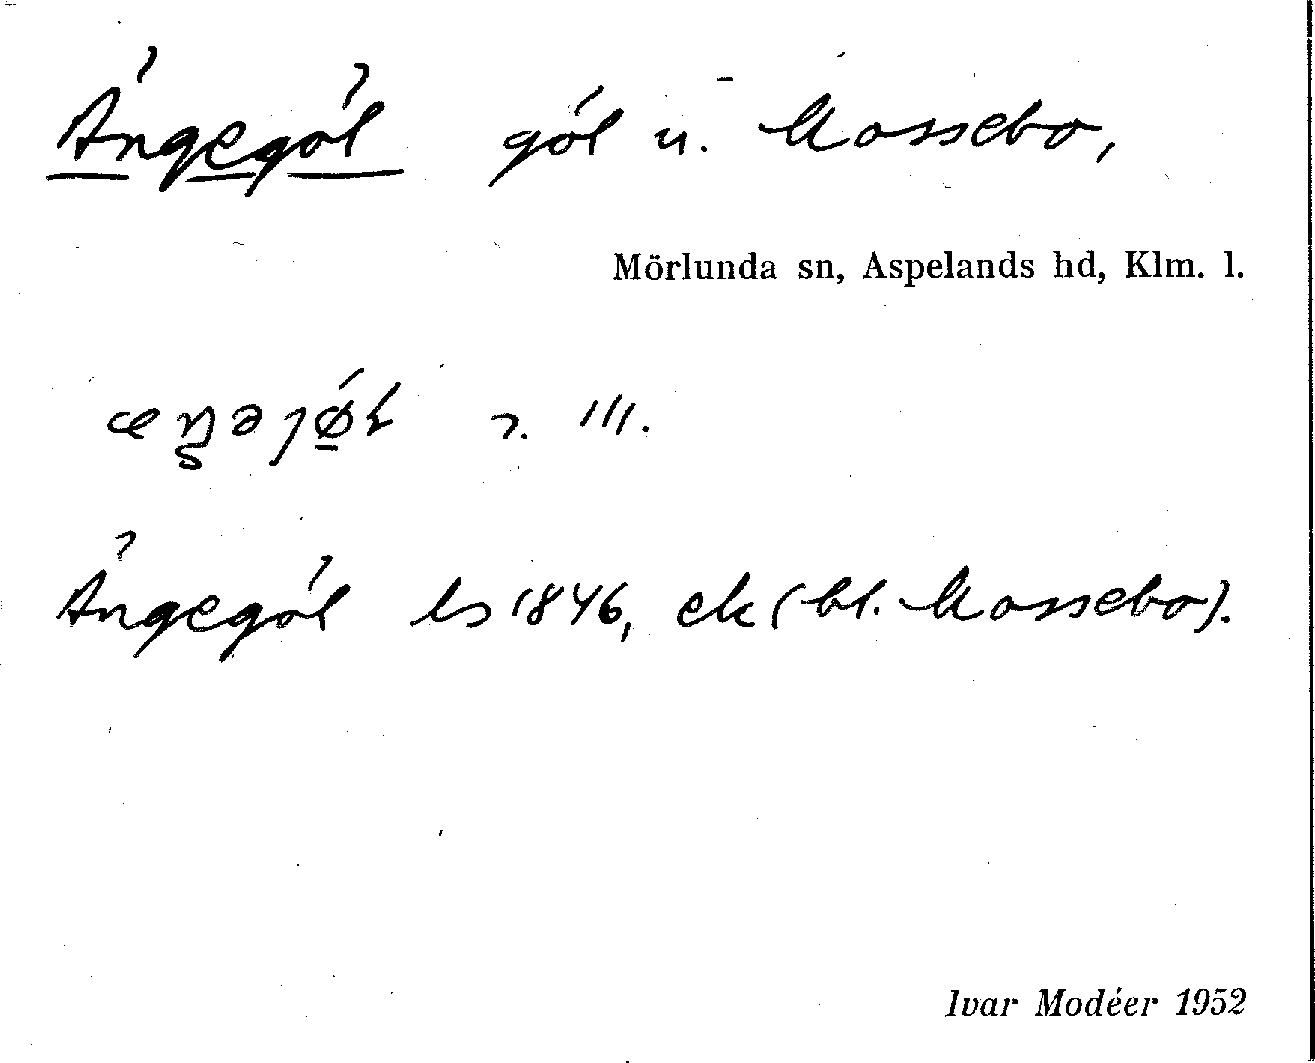 Ängegöl göl u. Mossebo,
Mörlunda sn, Aspelands hd, Klm. l.
III.
Ängegöl ls 1846, ek (bl. Mossebo).
Ivar Modéer 1952